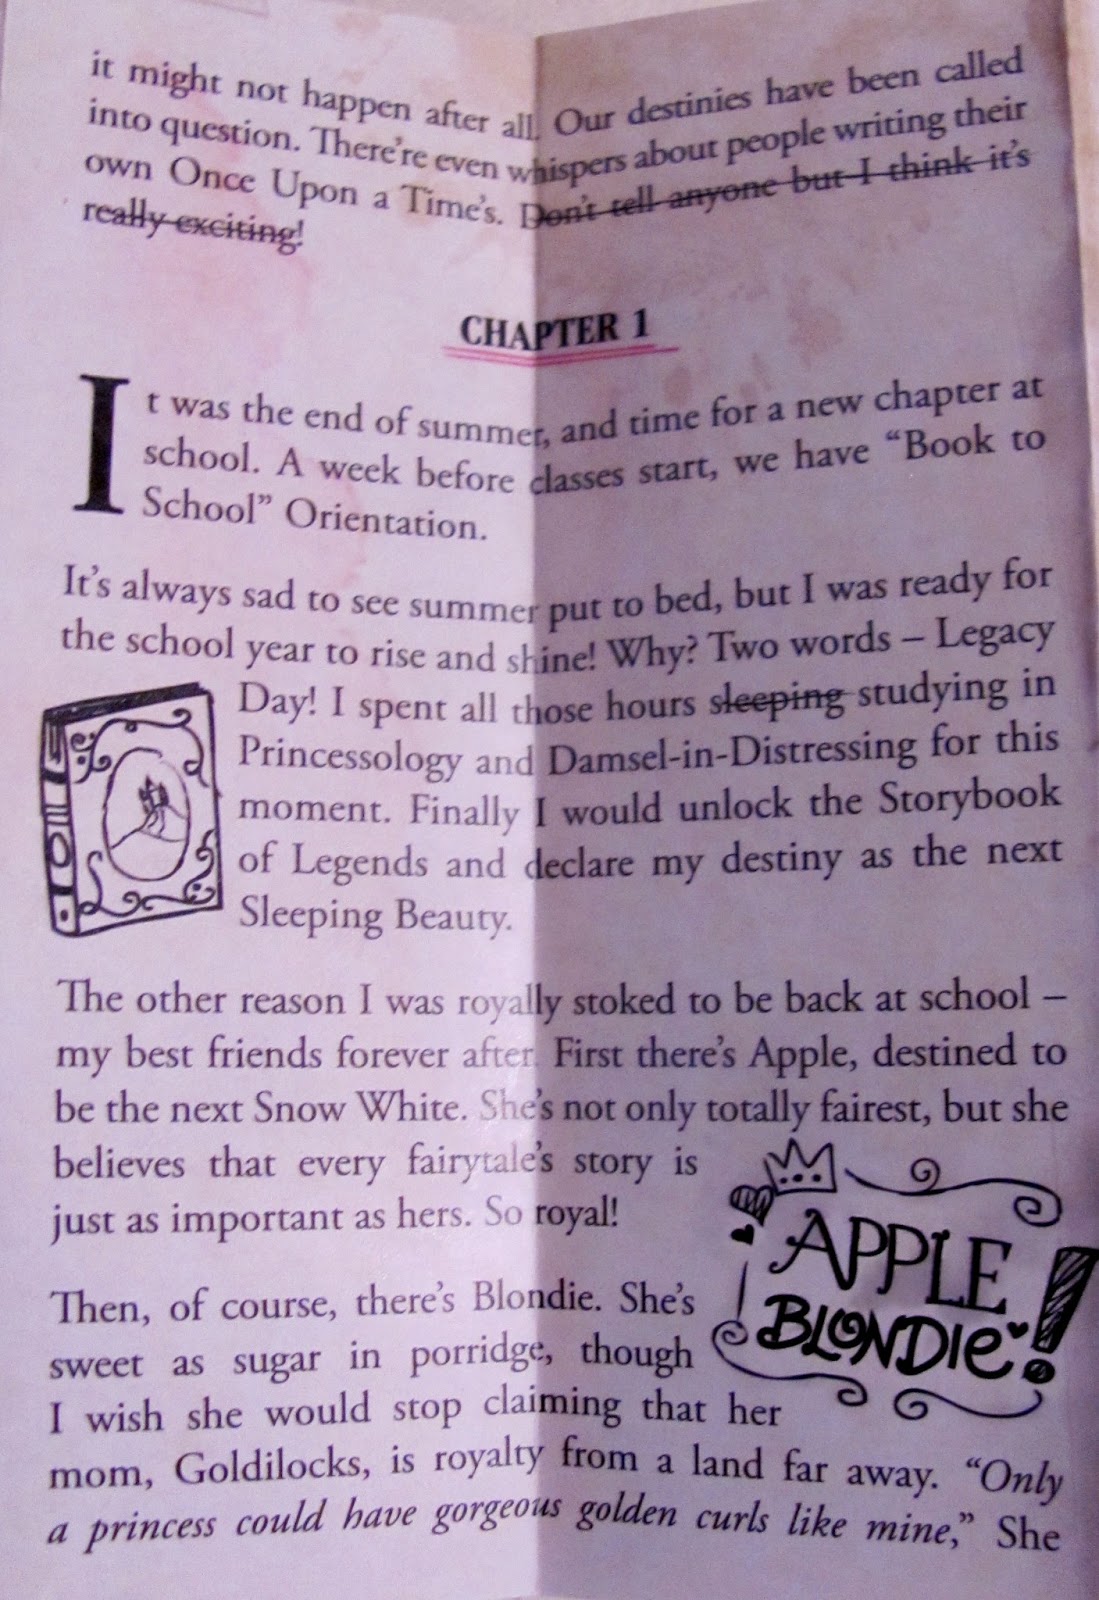 it might not happen after all. Our destinies have been called
into question. There're even whispers about people writing their
own Once Upon a Time's. Don't tell anyone but I think it's
really exciting!
CHAPTER 1
It was the end of summer, and time for a new chapter at
school. A week before classes start, we have “Book to
School” Orientation.
It's always sad to see summer put to bed, but I was ready for
the school year to rise and shine! Why? Two words – Legacy
Day! I spent all those hours sleeping studying in
Princessology and Damsel-in-Distressing for this
moment. Finally I would unlock the Storybook
of Legends and declare my destiny as the next
Sleeping Beauty.
The other reason I was royally stoked to be back at school –
my best friends forever after. First there's Apple, destined to
be the next Snow White. She's not only totally fairest, but she
believes that every fairytale's story is
just as important as hers. So royal!
APPLE
BLONDIE!
Then, of course, there's Blondie. She's
sweet as sugar in porridge, though
I wish she would stop claiming that her
mom, Goldilocks, is royalty from a land far away. “Only
a princess could have gorgeous golden curls like mine,” She